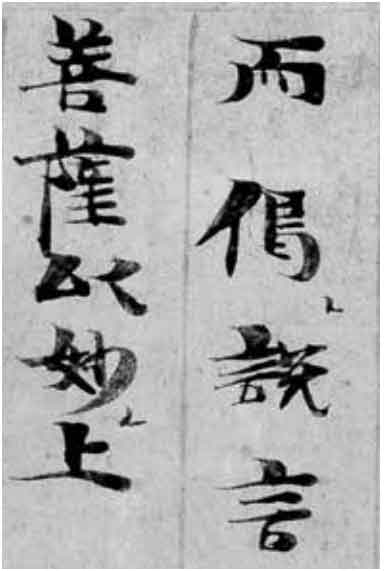 而偈㇑說言
菩薩以妙㇑上